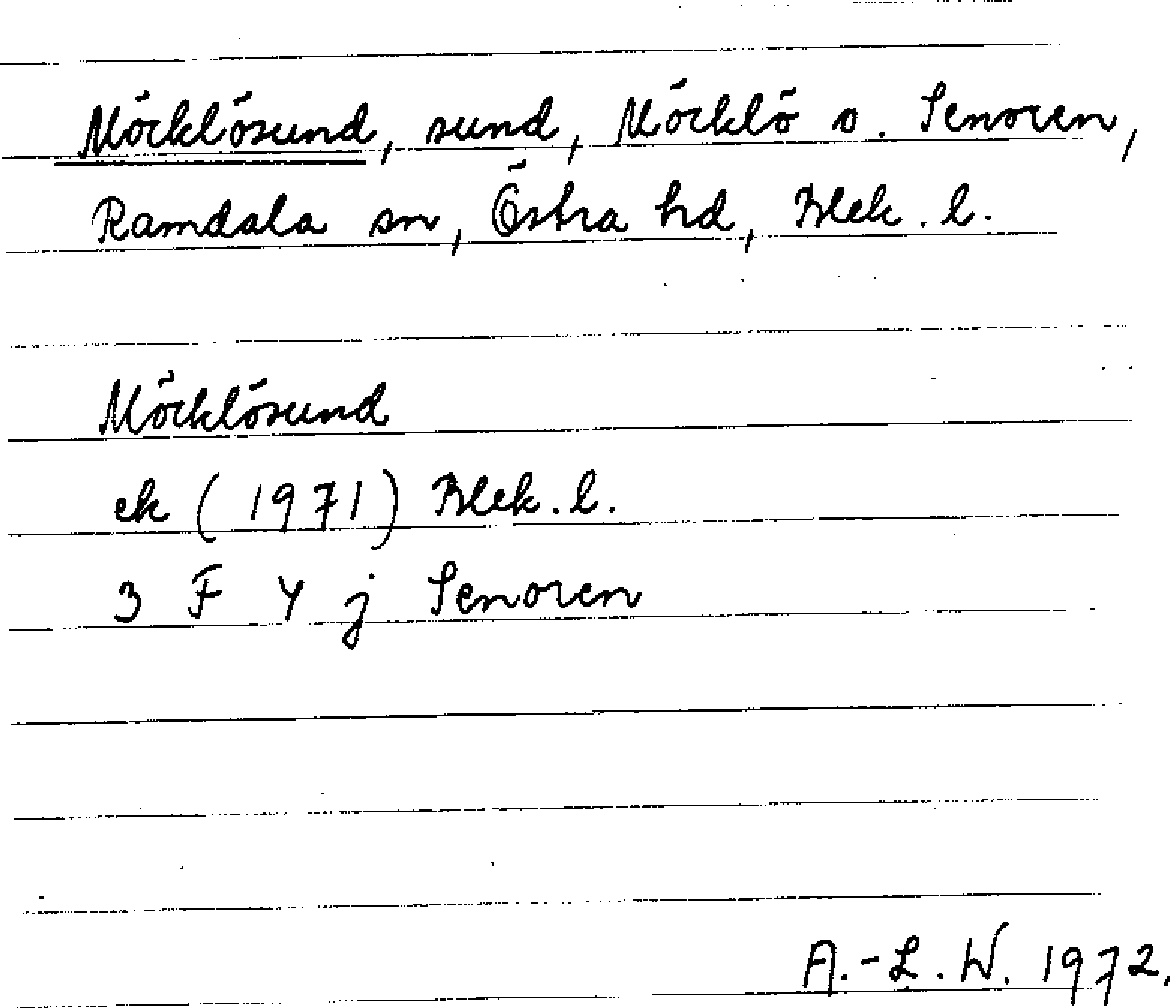 Möcklösund, sund, Möcklö o. Senoren,
Ramdala sn, Östra hd, Blek. l.
Möcklösund
ek (1971) Blek. l.
3 F 4 j Senoren
A.-L. W. 1972.